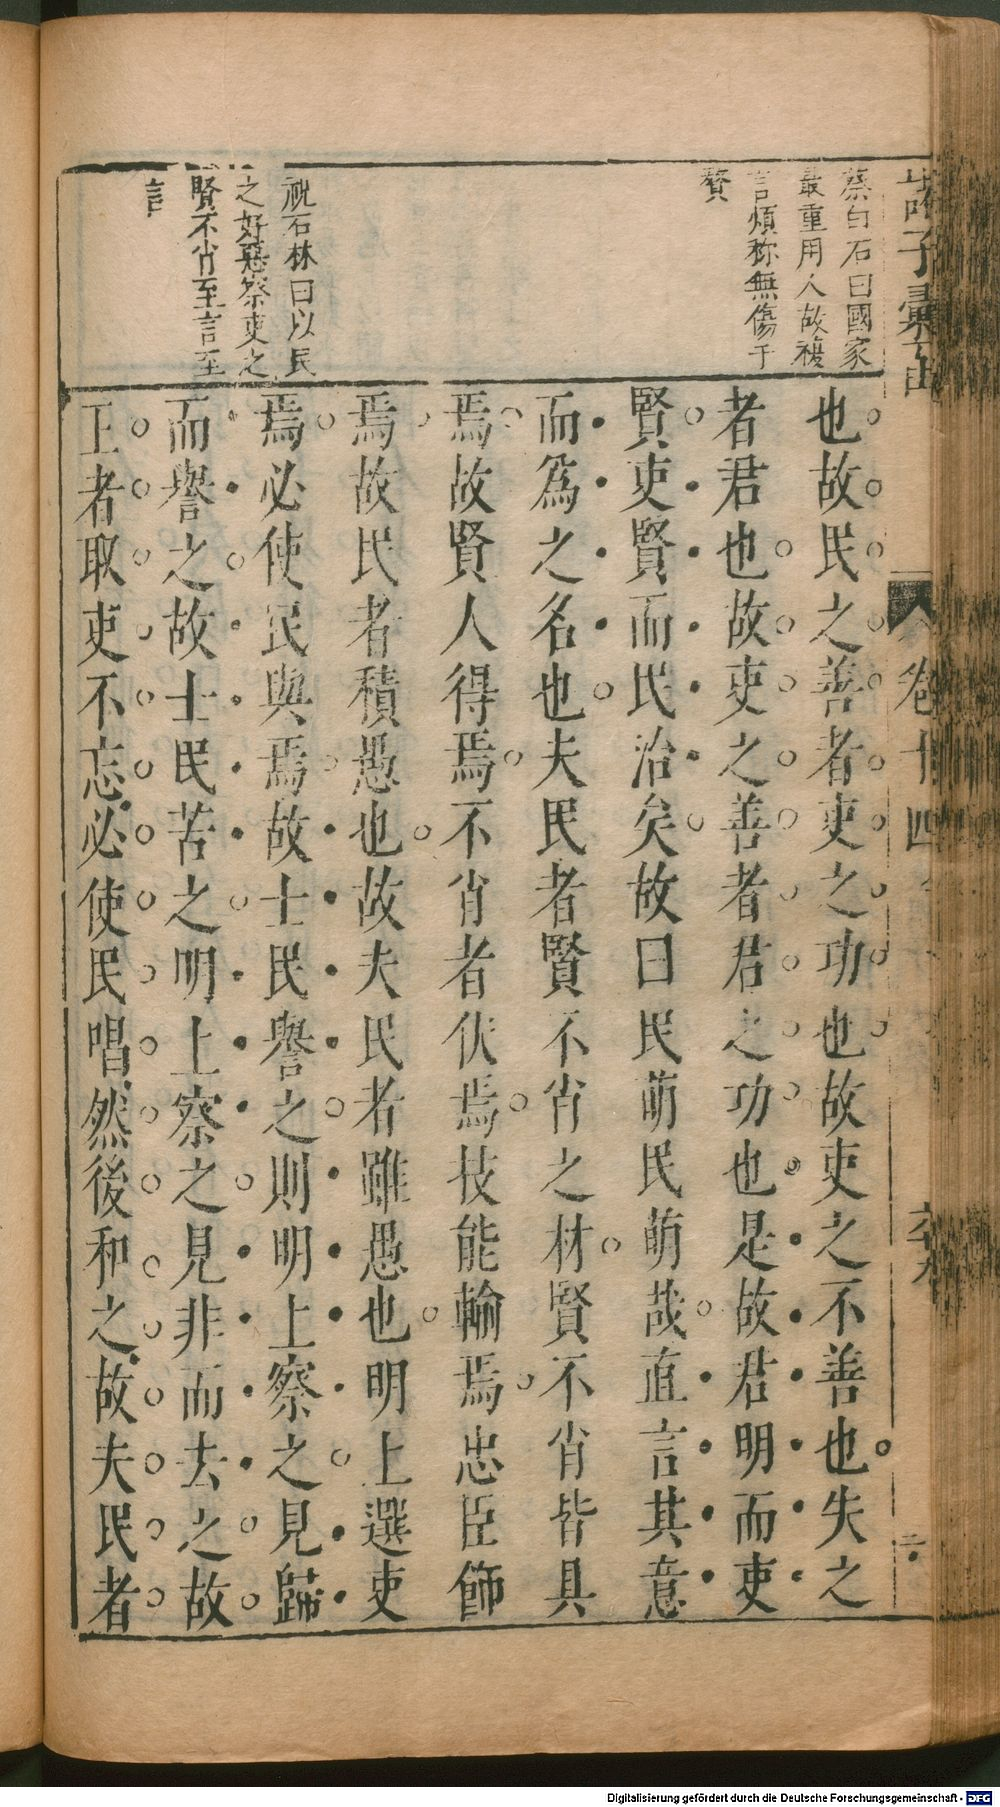 諸子彙函
卷十四
六九
二
蔡白石曰國家
最重用人故複
言煩称無傷于
贅
祝石林曰以民
之好惡察吏之
賢不肖至言至
言
也故民之善者吏之功也故吏之不善也失之
者君也故吏之善者君之功也是故君明而吏
賢吏賢而民治矣故曰民萌民萌哉直言其意
而爲之名也夫民者賢不肖之材賢不肖皆具
焉故賢人得焉不肖者伏焉技能輸焉忠臣飾
焉故民者積愚也故夫民者雖愚也明上選吏
焉必使民與焉故士民譽之則明上察之見歸
而譽之故士民苦之明上察之見非而去之故
王者取吏不忘必使民唱然後和之故夫民者
Digitalisierung gefördert durch die Deutsche Forschungsgemeinschaft - DFG